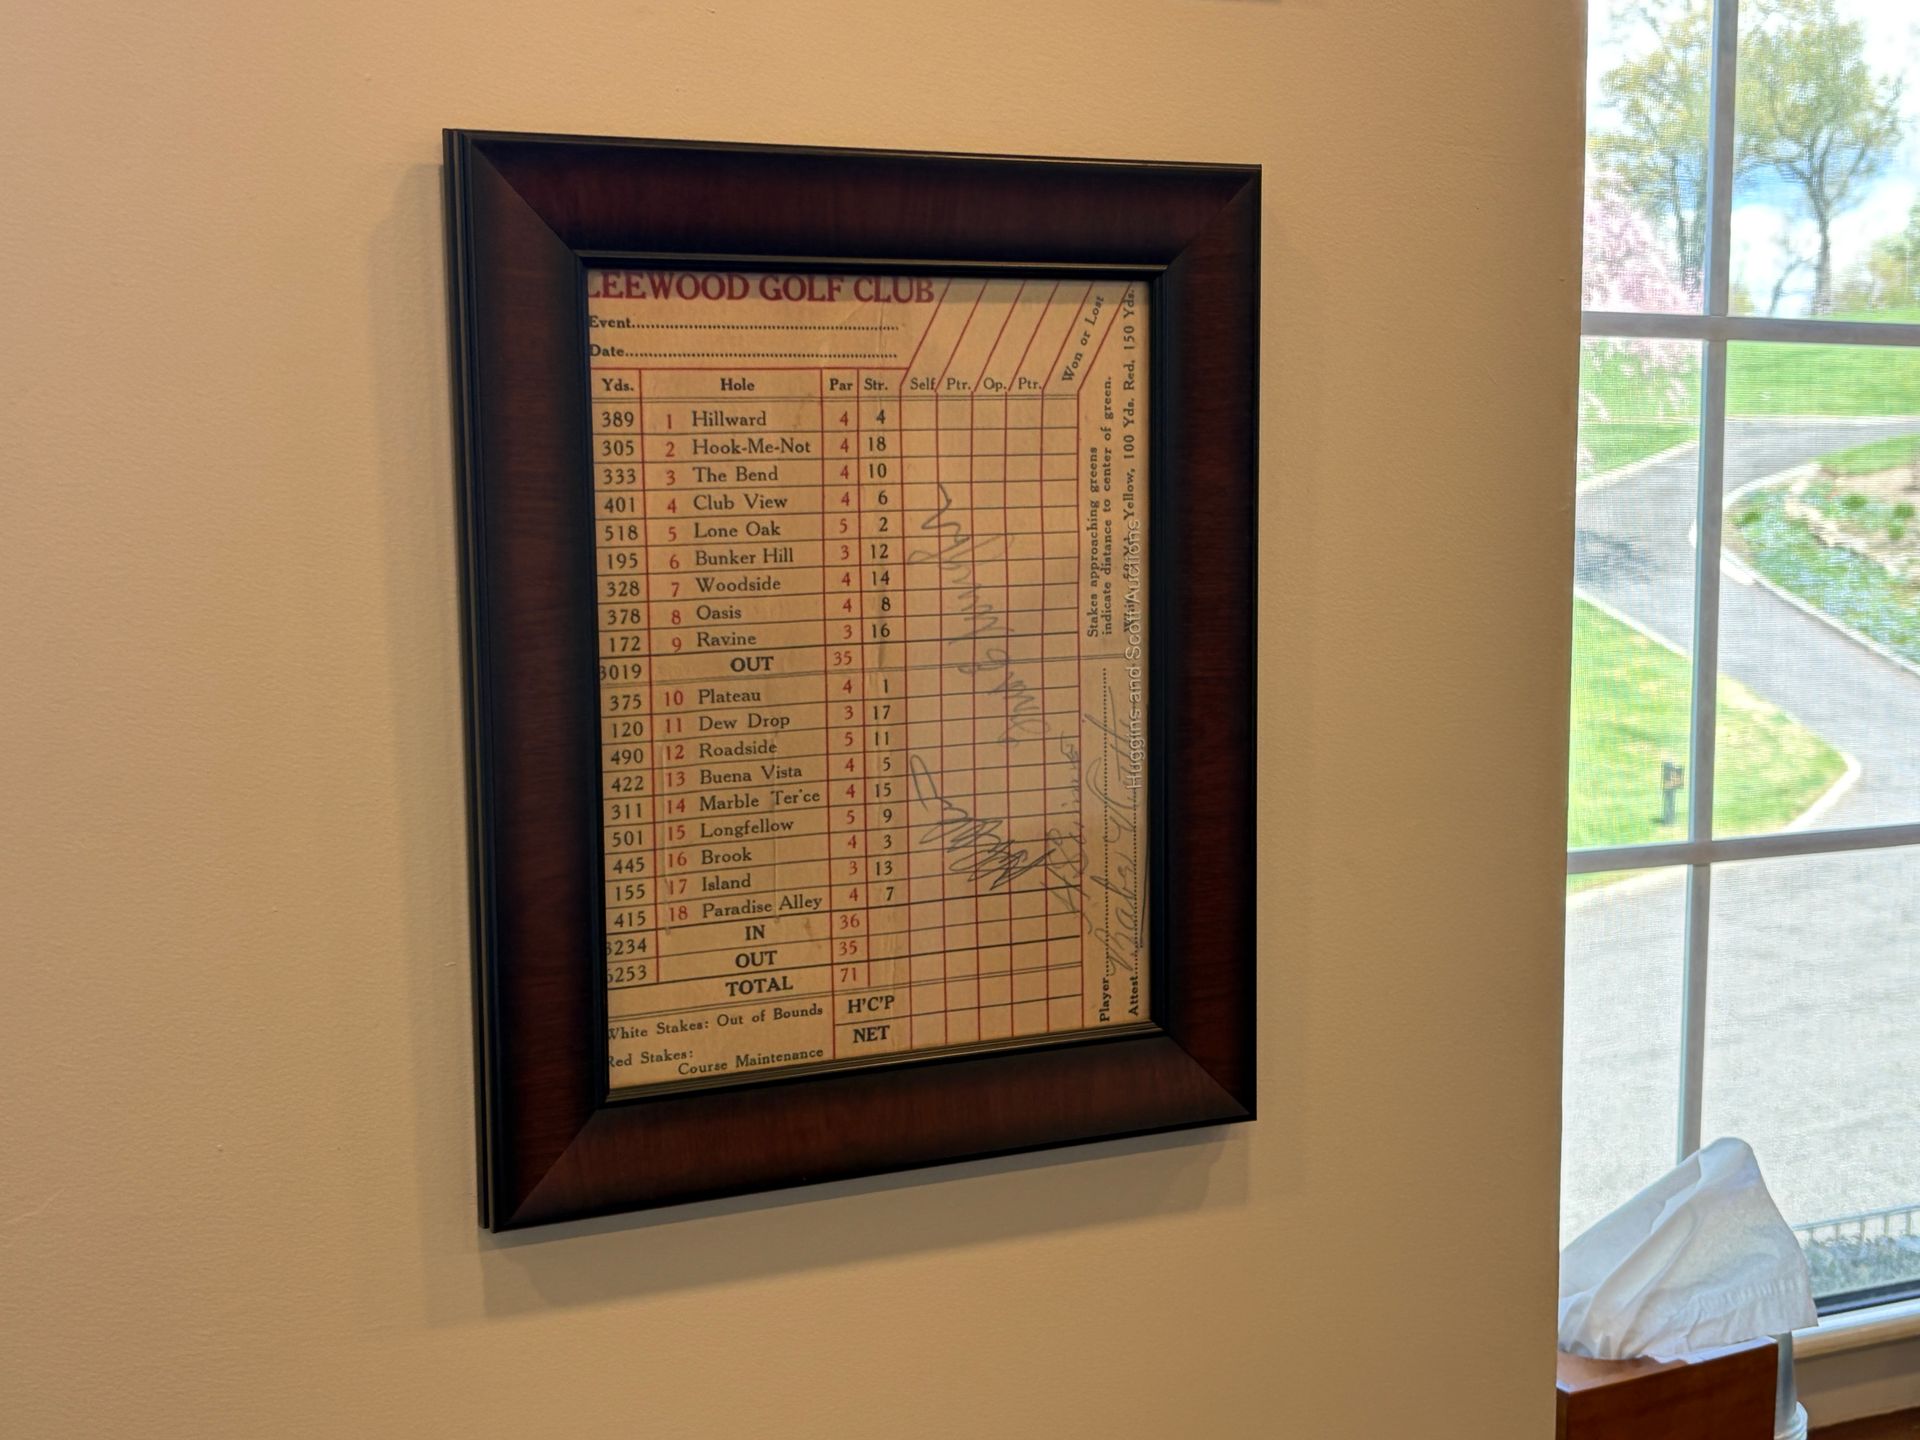 LEEWOOD GOLF CLUB
Event
Date
Yds. Hole Par Str. Self Ptr. Op. Ptr. Won or Lost
389 1 Hillward 4 4
305 2 Hook-Me-Not 4 18
333 3 The Bend 4 10
401 4 Club View 4 6
518 5 Lone Oak 5 2
195 6 Bunker Hill 3 12
328 7 Woodside 4 14
378 8 Oasis 4 8
172 9 Ravine 3 16
3019 OUT 35
375 10 Plateau 4 1
120 11 Dew Drop 3 17
490 12 Roadside 5 11
422 13 Buena Vista 4 5
311 14 Marble Ter'ce 4 15
501 15 Longfellow 5 9
445 16 Brook 4 3
155 17 Island 3 13
415 18 Paradise Alley 4 7
3234 IN 36
OUT 35
6253 TOTAL 71
White Stakes: Out of Bounds H'C'P
Red Stakes: NET
Course Maintenance
Stakes approaching greens
indicate distance to center of green.
Yellow, 100 Yds. Red, 150 Yds.
Player
Attest
Babe Ruth
Huggins and Scott Auctions